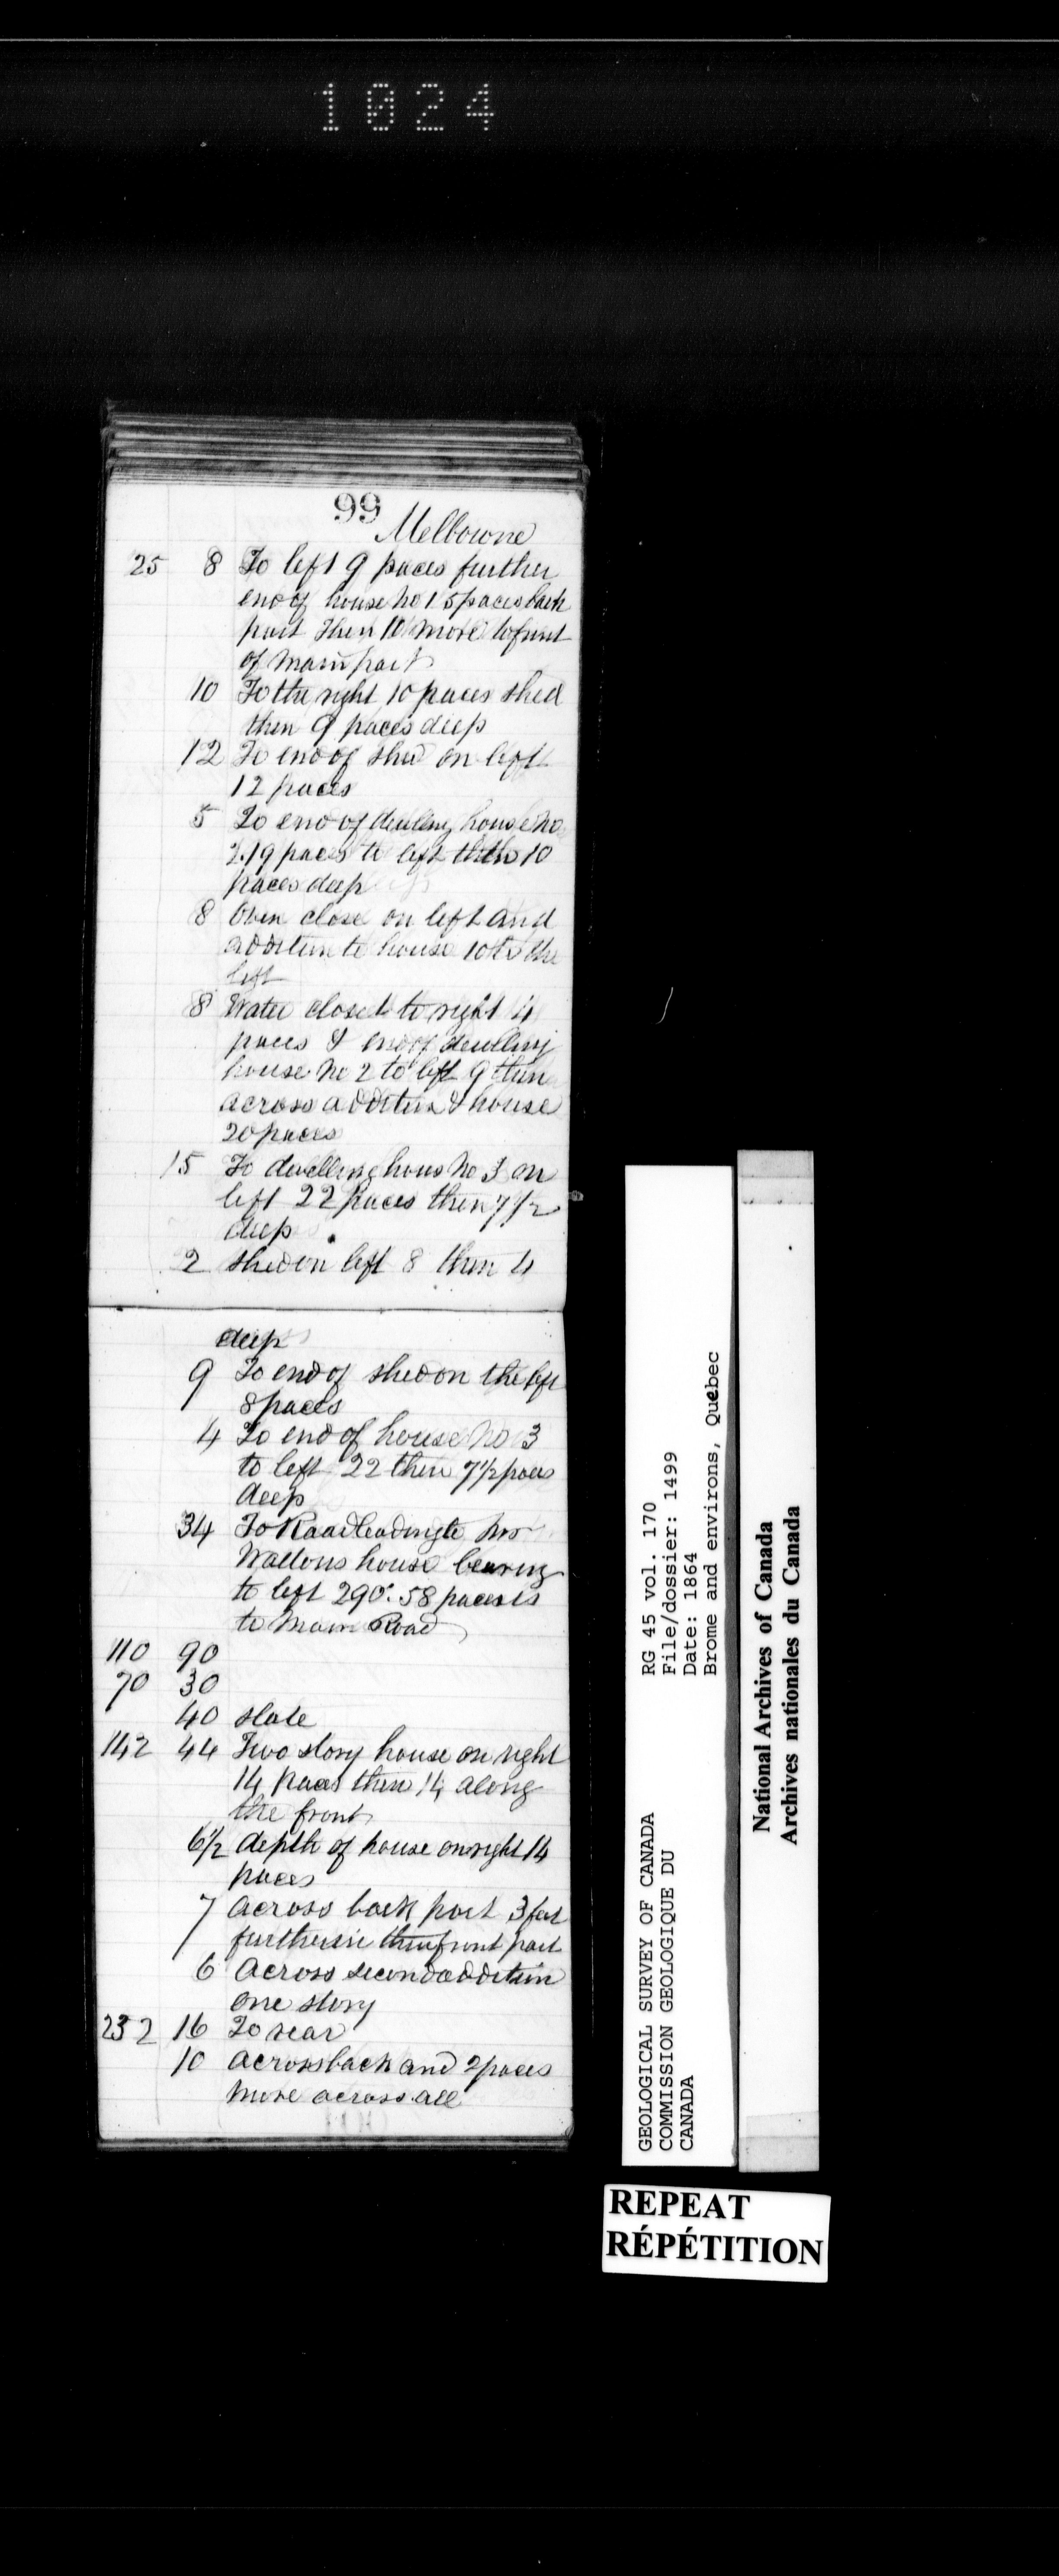 1024
99
Melbourne
25 8 To left 9 paces further
end of house No 1 5 paces back
part then 10 more to front
of main part
10 To the right 10 paces shed
then 9 paces deep
12 To end of shed on left
12 paces
5 To end of dwelling house No
2. 19 paces to left then 10
paces deep
8 Oven close on left and
addition to house 10 to the
left
8 Water closet to right 4
paces & end of dwelling
house No 2 to left 9 then
across addition & house
20 paces
15 To dwelling hous No 3 on
left 22 paces then 7 1/2
deep
2 shed on left 8 then 4
deep
9 To end of shed on the left
8 paces
4 To end of house No 3
to left 22 then 7 1/2 paces
deep
34 To Road leading to Mrs
Wattons house bearing
to left 290°. 58 paces is
to Main Road
110 90
70 30
40 slate
142 44 Two story house on right
14 paces then 14 along
the front
6 1/2 depth of house on right 14
paces
7 Across back part 3 feet
further in than front part
6 Across second addition
one story
232 16 To rear
10 Across back and 2 paces
more across all
GEOLOGICAL SURVEY OF CANADA
COMMISSION GEOLOGIQUE DU
CANADA
RG 45 vol. 170
File/dossier: 1499
Date: 1864
Brome and environs, Quebec
National Archives of Canada
Archives nationales du Canada
REPEAT
RÉPÉTITION